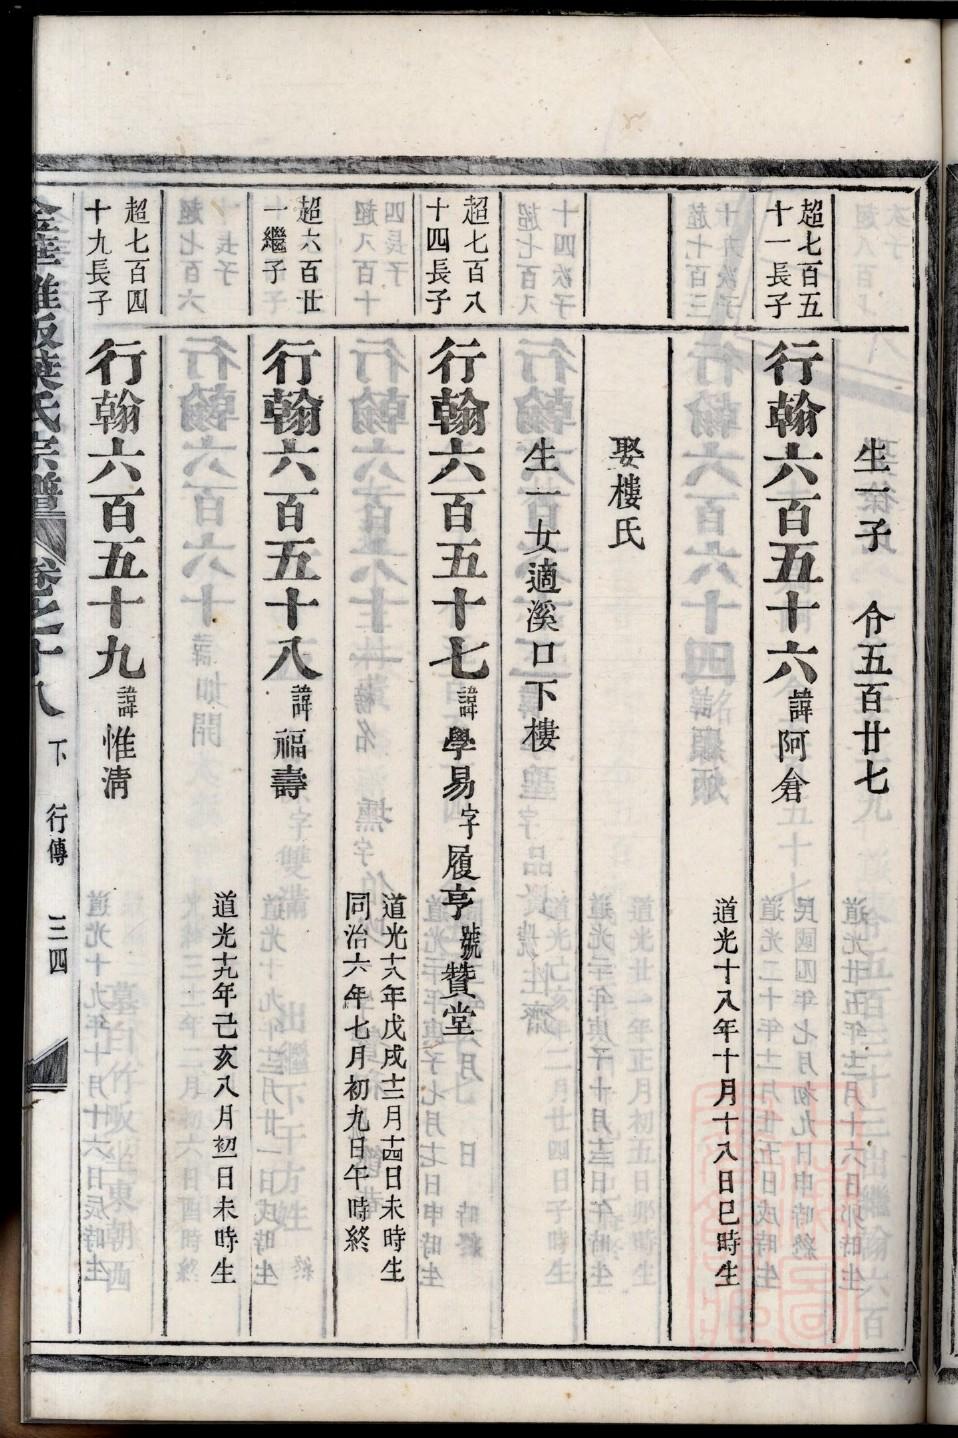 生一子 介五百廿七
超七百五
十一長子
行翰六百五十六 諱 阿倉
道光十八年十月十八日巳時生
娶樓氏
生一女適溪口下樓
超七百八
十四長子
行翰六百五十七 諱 學易 字 履亨 號 贊堂
道光十八年戊戌十二月十四日未時生
同治六年七月初九日午時終
超六百廿
一繼子
行翰六百五十八 諱 福壽
道光十九年己亥八月初一日未時生
超七百四
十九長子
行翰六百五十九 諱 惟清
葉氏宗譜 卷之十八 下 行傳 三四